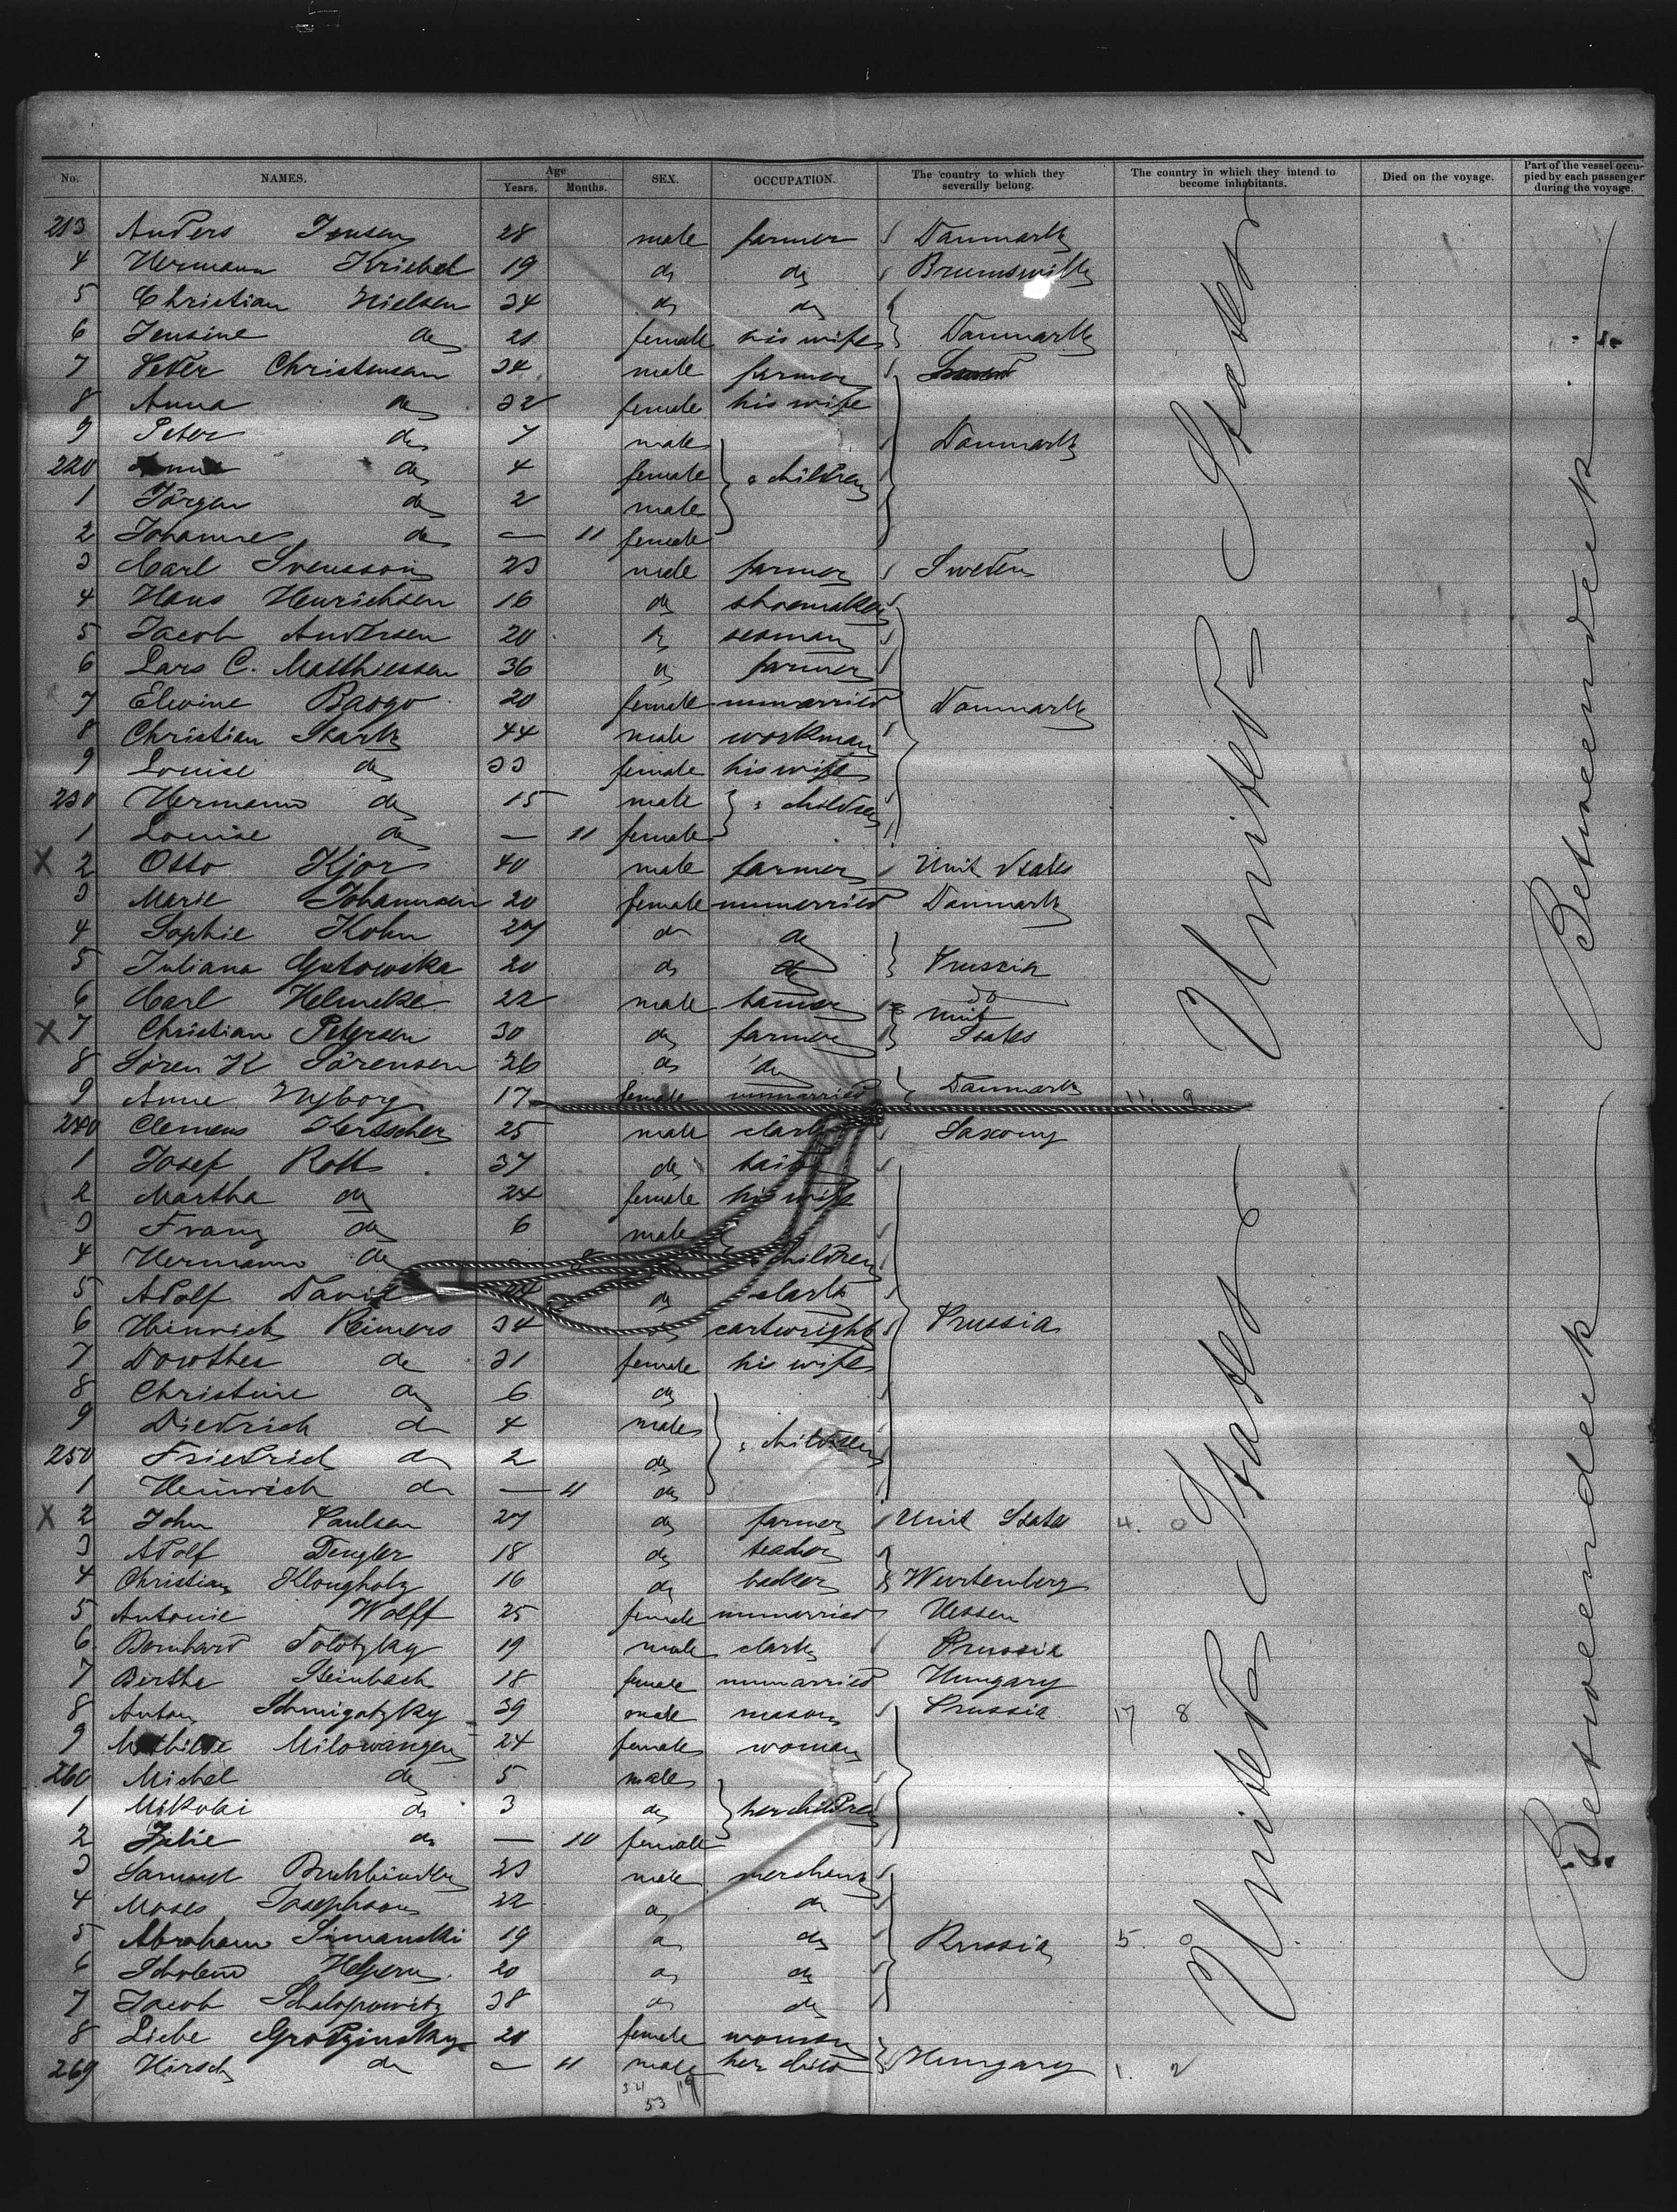 No. NAMES. Age Years. Months. SEX. OCCUPATION. The country to which they severally belong. The country in which they intend to become inhabitants. Died on the voyage. Part of the vessel occupied by each passenger during the voyage.
213 Anders Jensen 28 male farmer Danmark
4 Hermann Kriebel 19 do do Brunswick
5 Christian Nielsen 34 do do
6 Jensine do 21 female his wife Danmark
7 Peter Christensen 34 male farmer
8 Anna do 32 female his wife
9 Peter do 7 male Danmark
220 do 4 female children
1 Jörgen do 2 male
2 Johanne do — 11 female
3 Carl Svensson 23 male farmer Sweden
4 Hans Henrichsen 16 do shoemaker
5 Jacob Andersen 20 do seaman
6 Lars C. Matthiessen 36 do farmer
7 Elvine Baogo 20 female unmarried Danmark
8 Christian Stark 44 male workman
9 Louise do 33 female his wife
230 Hermann do 15 male children
1 Louise do — 11 female
X 2 Otto Kjor 40 male farmer Unit States
3 Marie Johannsen 20 female unmarried Danmark
4 Sophie Kohn 27 do do
5 Juliana Gutowska 20 do do Prussia
6 Carl Helmcke 22 male do
X 7 Christian Petersen 30 do farmer Unit States
8 Sören K Sörensen 26 do do
9 Anne Nyborg 17 female unmarried Danmark 11. 9
240 Clemens Kertscher 25 male clark Saxony
1 Josef Rott 37 do
2 Martha do 24 female his wife
3 Franz do 6 male
4 Hermann do children
5 Adolf David do clark
6 Hinrich Reimers 34 do cartwright Prussia
7 Dorothea do 31 female his wife
8 Christine do 6 do
9 Diedrich do 4 male children
250 Friedrich do 2 do
1 Heinrich do — 11 do
X 2 John Paulsen 27 do farmer Unit States 4. 0
3 Adolf Dengler 18 do
4 Christian Klougholz 16 do backer Wurtemberg
5 Antonie Wolff 25 female unmarried Hessen
6 Bernhard Tolotzky 19 male clark Prussia
7 Bertha Steinbach 18 female unmarried Hungary
8 Anton Schmigotzky 39 male mason Prussia 17 8
9 Mathilde Milowangen 24 female woman
260 Michel do 5 male
1 Mikolai do 3 do her children
2 Julie do — 10 female
3 Samuel Buchbinder 23 male merchant
4 Moses Josephson 22 do do
5 Abraham Simanski 19 do do Russia 5. 0
6 Scholem Helpern 20 do do
7 Jacob Schalopowitz 38 do do
8 Liebe Grodzinsky 20 female woman
269 Hirsch do — 11 male her child Hungary 1. 2
53
United States
United States
Betweendeck
Betweendeck